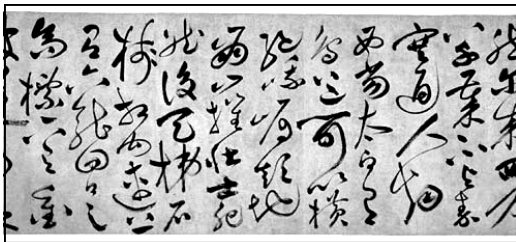 然爾來四萬
八千歲不與秦
塞通人煙
西當太白有
鳥道可以橫
絕峨眉巔地
崩山摧壯士死
然後天梯石
棧相鉤連上
有六龍回日之
高標下有衝